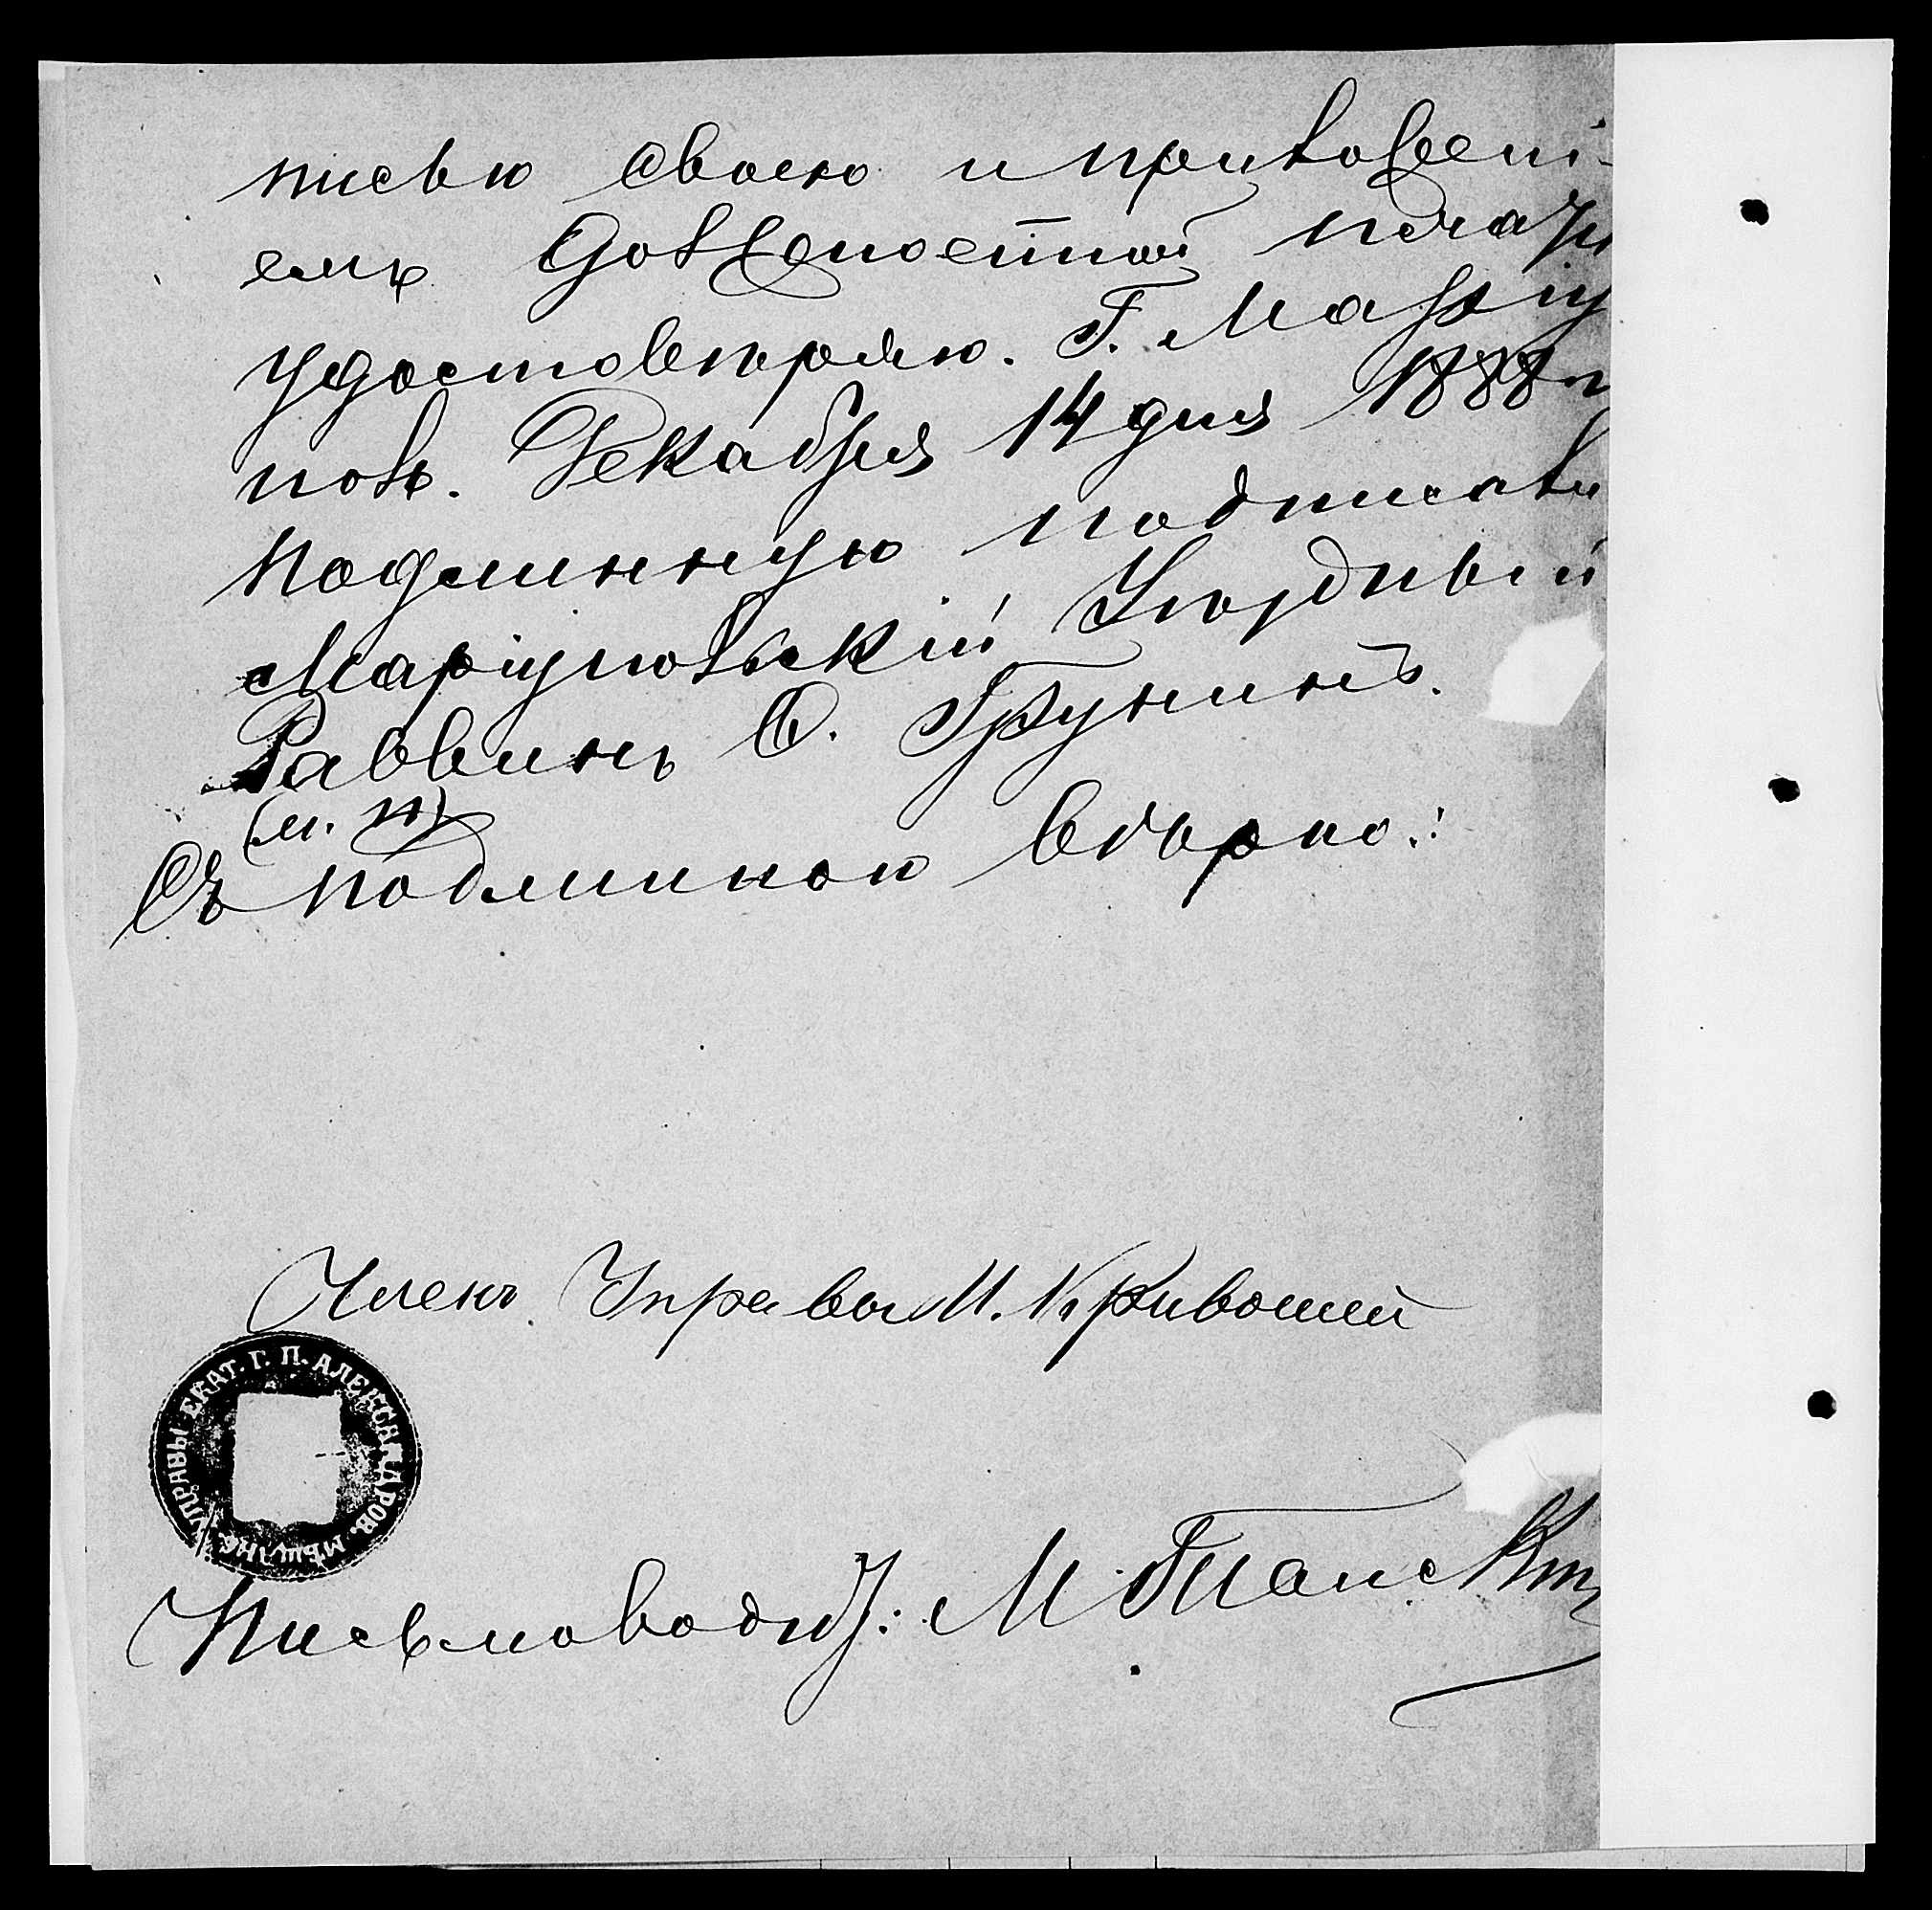 писью своею и приложені-
емъ Должностной печати
удостовѣряю. Г. Маріу
поль. Декабря 14 дня 1888 г
Подлинную подписалъ
Маріупольскій Уѣздный
Раввинъ С. Грунинъ.
(м. п.)
Съ подлиною вѣрно:
Членъ Управы И. Кривошей
УПРАВЫ ЕКАТ. Г. П. АЛЕКСАНДРОВ. МѢЩАНС.
Письмоводит: М